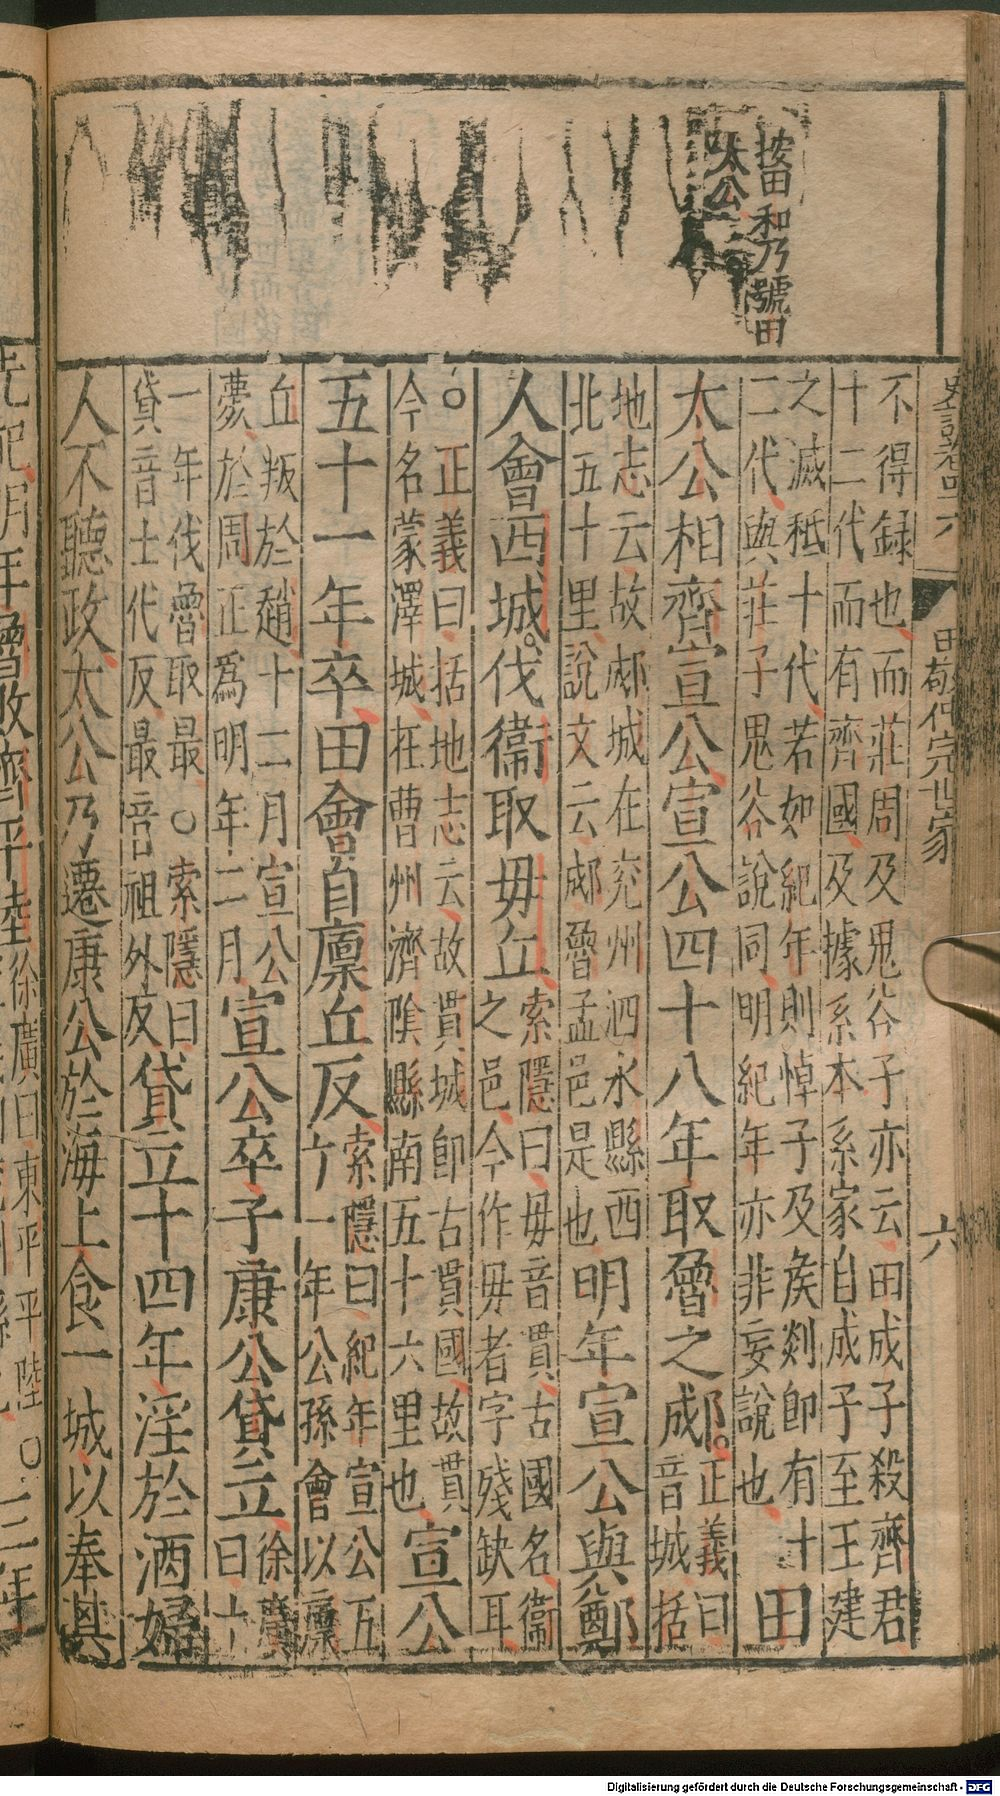 史記卷四六
田敬仲完世家
六
按田和乃號田
太公
不得録也而莊周及鬼谷子亦云田成子殺齊君
十二代而有齊國及據系本系家自成子至王建
之滅秪十代若如紀年則悼子及侯剡即有十
二代與莊子鬼谷說同明紀年亦非妄說也田
太公相齊宣公宣公四十八年取魯之郕正義曰
音城括
地志云故郕城在兖州泗水縣西
北五十里說文云郕魯孟邑是也明年宣公與鄭
人會西城伐衞取毋丘索隱曰毋音貫古國名衞
之邑今作毋者字殘缺耳
○正義曰括地志云故貫城即古貫國故貫
今名蒙澤城在曹州濟陰縣南五十六里也宣公
五十一年卒田會自廪丘反索隱曰紀年宣公五
十一年公孫會以廪
丘叛於趙十二月宣公
薨於周正爲明年二月宣公卒子康公貸立徐廣
曰十
一年伐魯取最○索隱曰
貸音士代反最音祖外反貸立十四年淫於酒婦
人不聽政太公乃遷康公於海上食一城以奉其
先祀明年魯敗齊平陸徐廣曰東平平陸○
三年
Digitalisierung gefördert durch die Deutsche Forschungsgemeinschaft - DFG